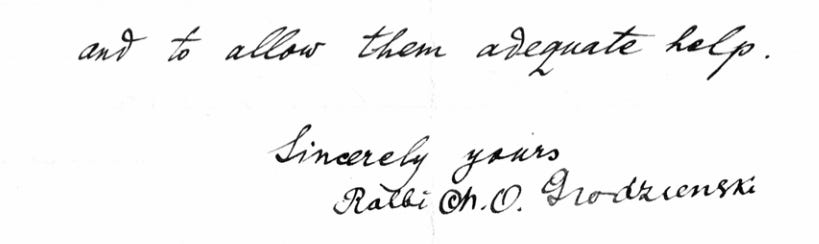 and to allow them adequate help.
Sincerely yours
Rabbi Ch. O. Grodzienski